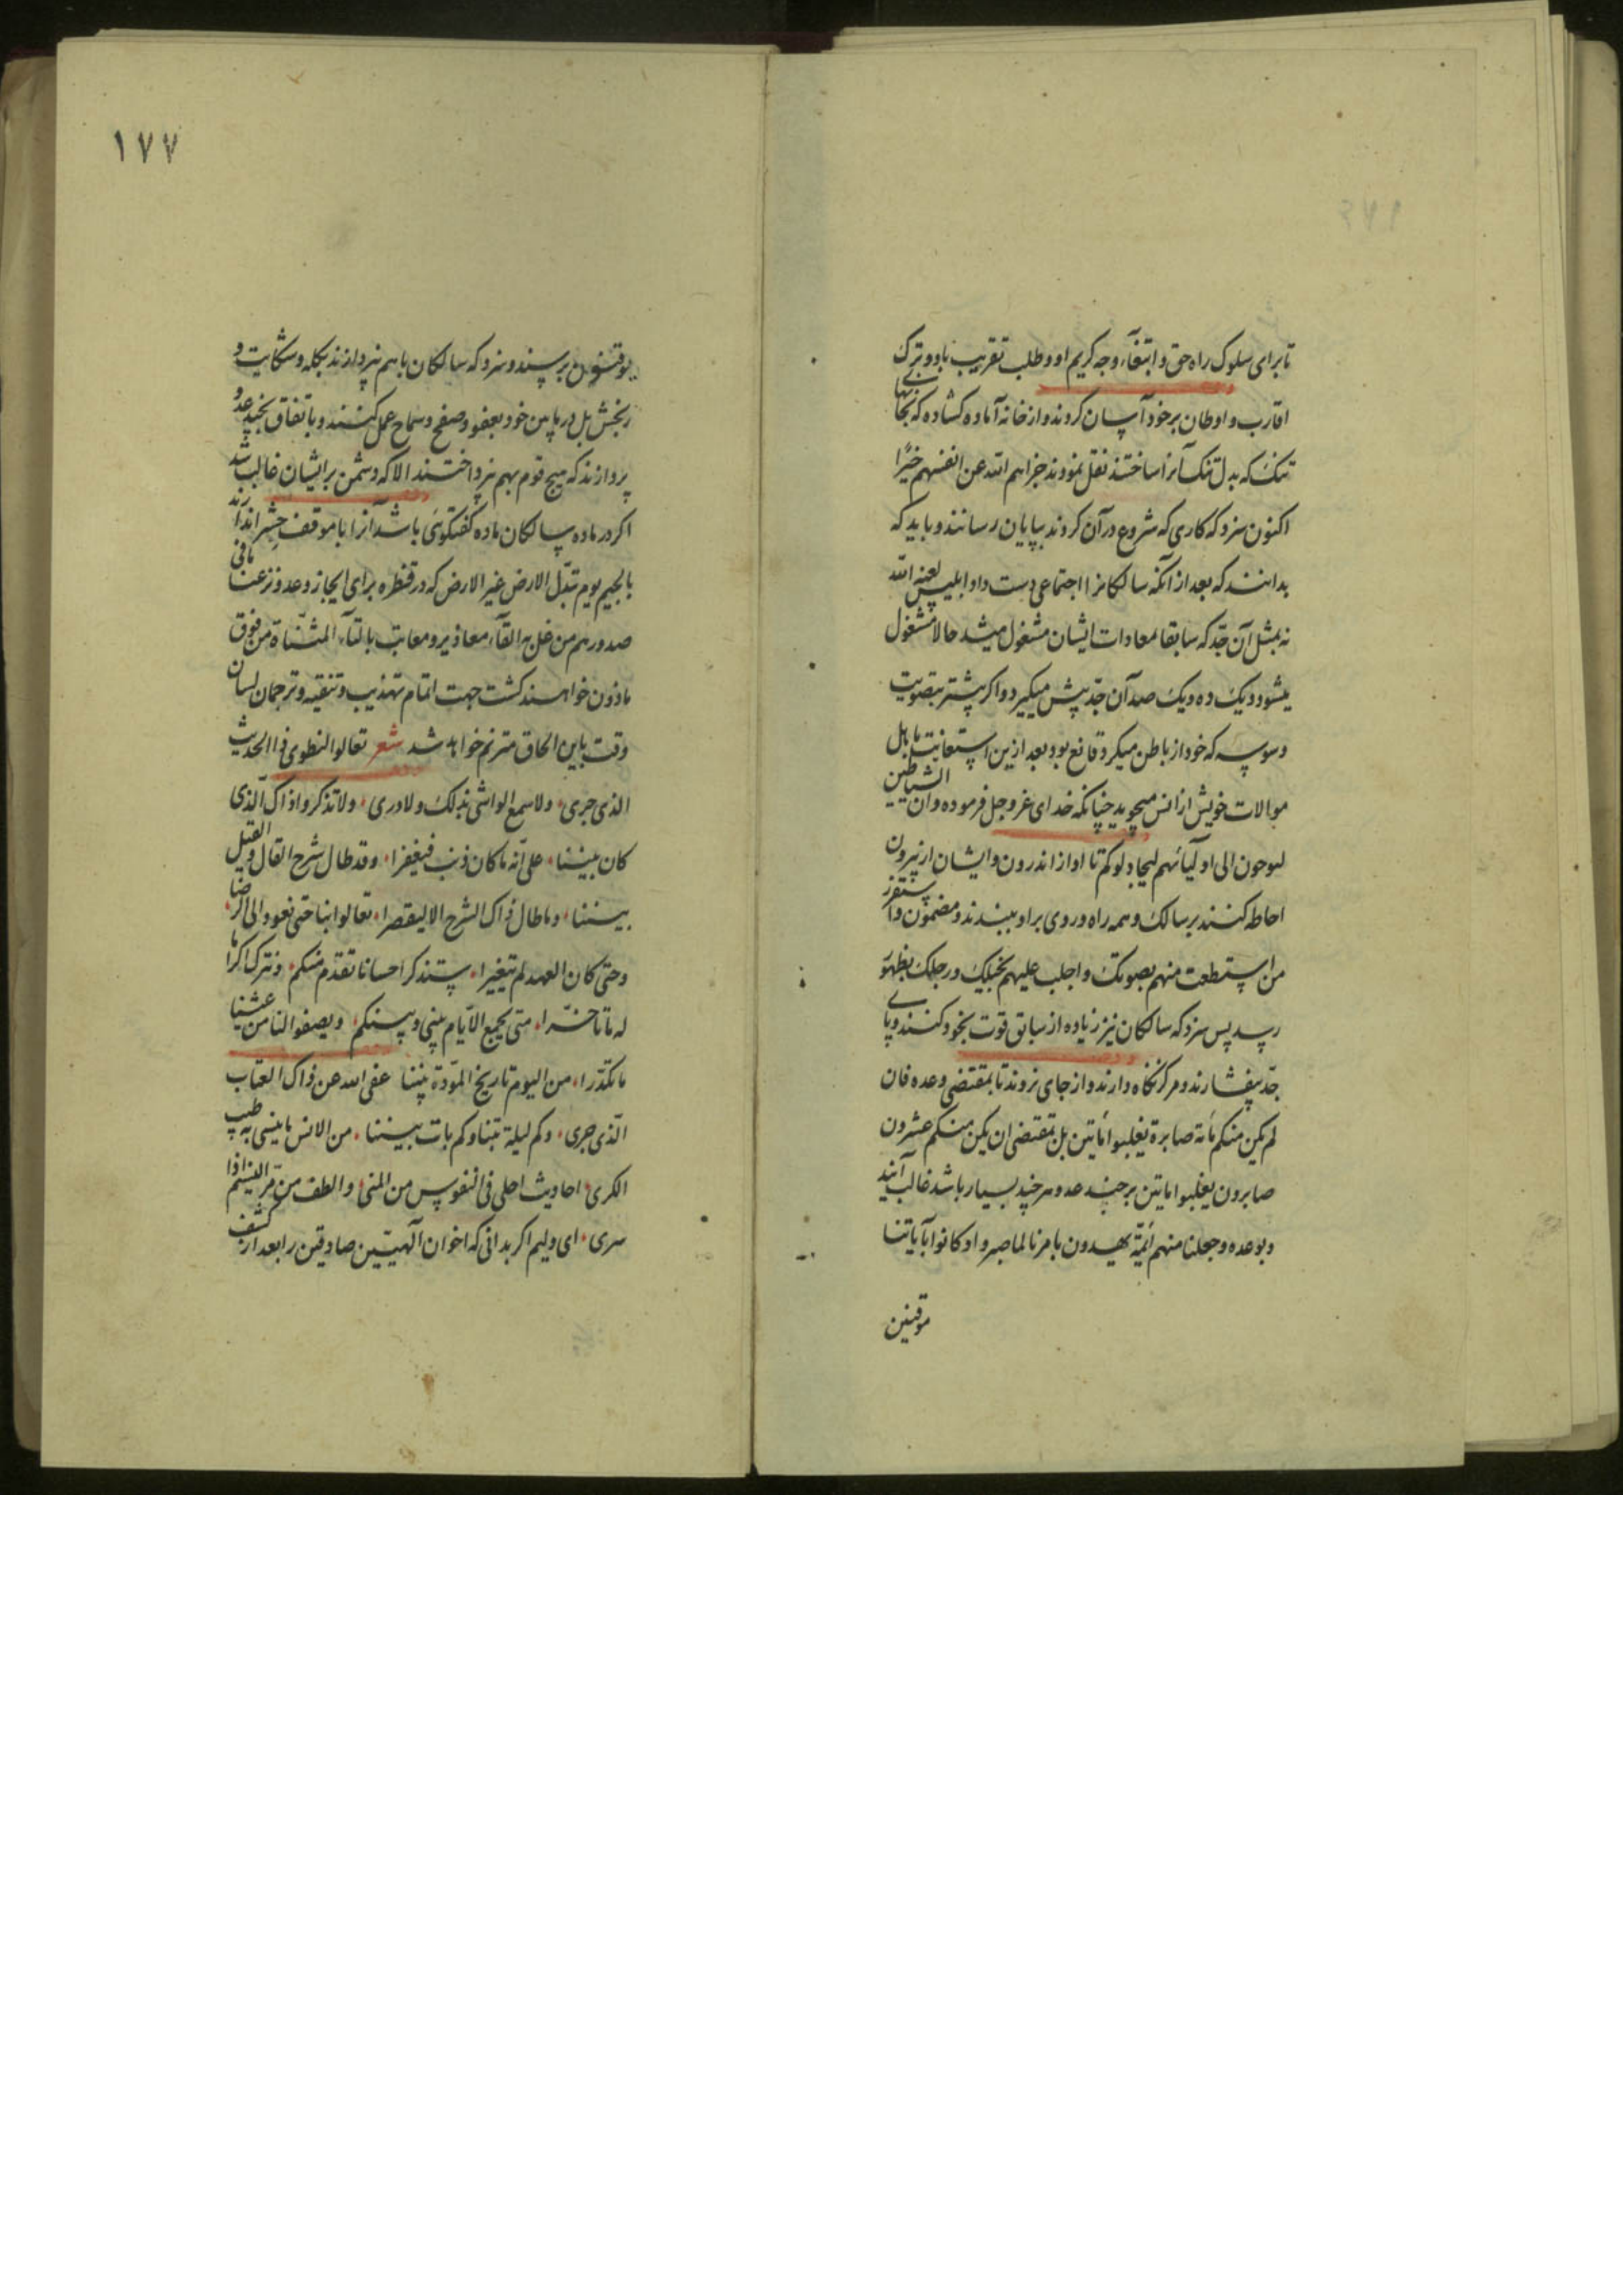 تا برای سلوک راه حق و ابتغاء وجه کریم او و طلب تقریب باو و ترک
اقارب و اوطان بر خود آسان کردند و از خانه آماده کشاده که بجای
تنک که بدل تنک آنرا ساختند نقل نمودند جزاهم الله عن انفسهم خیرًا
اکنون سزد که کاری که شروع در آن کردند بپایان رسانند و باید که
بدانند که بعد از آنکه سالکانرا اجتماعی دست داد ابلیس لعنه الله
نه بمثل آن جدّ که سابقا لمعادات ایشان مشغول میشد حالا مشغول
میشود و یک ده و یک صد آن جدّ پیش میکیرد و اکر پیشتر بتصویت
وسوسه که خود از باطن میکرد قانع بود بعد ازین استعانت باهل
موالات خویش از انس میجوید چنانکه خدای عز و جل فرموده و ان الشیاطین
لیوحون الی اولیائهم لیجادلوکم تا او از اندرون و ایشان از بیرون
احاطه کنند بر سالک و همه راه و روی بر او ببندند و مضمون و استفزز
من استطعت منهم بصوتک و اجلب علیهم بخیلک و رجلک بظهور
رسد پس سزد که سالکان نیز زیاده از سابق قوت بخود کنند و پای
جدّ بیفشارند و مرکز نکاه دارند و از جای نروند تا بمقتضی وعده فان
لم یکن منکم مائة صابرة یغلبوا مأتین بل بمقتضی ان یکن منکم عشرون
صابرون یغلبوا ماتین بر چند عدو هر چند بسیار باشد غالب آیند
و بوعده و جعلنا منهم ائمّة یهدون بامرنا لما صبروا و کانوا بآیاتنا
موقنین
١٧٧
یوقنون برسند و سزد که سالکان با هم نپردازند بکله و شکایت و
رنجش بل در مابین خود بعفو و صفح و سماح عمل کنند و باتفاق بجنب عدو
پردازند که هیچ قوم بهم نپرداختند الا که دشمن بر ایشان غالب شد
اکر در ماده سالکان ماده کفتکوئی باشد آنرا با موقف جشر اندازند
بالجیم یوم تبدّل الارض غیر الارض که در قنطره برای ایجاز وعد و نزعنا ما فی
صدورهم من غل به القآء معاذیر و معاتب بالتآء المثنّاة من فوق
ماذون خواهند کشت جهت اتمام تهذیب و تنقیه و ترجمان لسان
وقت باین الحاق مترنم خواهد شد شعر تعالوا لنطوی ذا الحدیث
الذی جری ولا سمع الواشی بذلک ولا دری ولا تذکروا ذاک الّذی
کان بیننا علی انّه ما کان ذنب فیغفرا وقد طال شرح القال والقیل
بیننا وما طال ذاک الشرح الا لیقصرا تعالوا بنا حتی نعود الی الرضا
وحتی کان العهد لم یتغیرا سنذکر احسانا تقدّم منکم ونترک اکراما
له ما تاخّرا متی یجمع الایّام بینی وبینکم ویصفو لنا من عیشنا
ما تکدّرا من الیوم تاریخ المودّة بیننا عفی الله عن ذاک العتاب
الّذی جری وکم لیلة بتنا وکم بات بیننا من الانس ما ینسی به طیب
الکری احادیث احلی فی النفوس من المنی والطف من مرّ النسیم اذا
سری ای ولیم اکر بدانی که اخوان آلهیّین صادقین را بعد از کشف